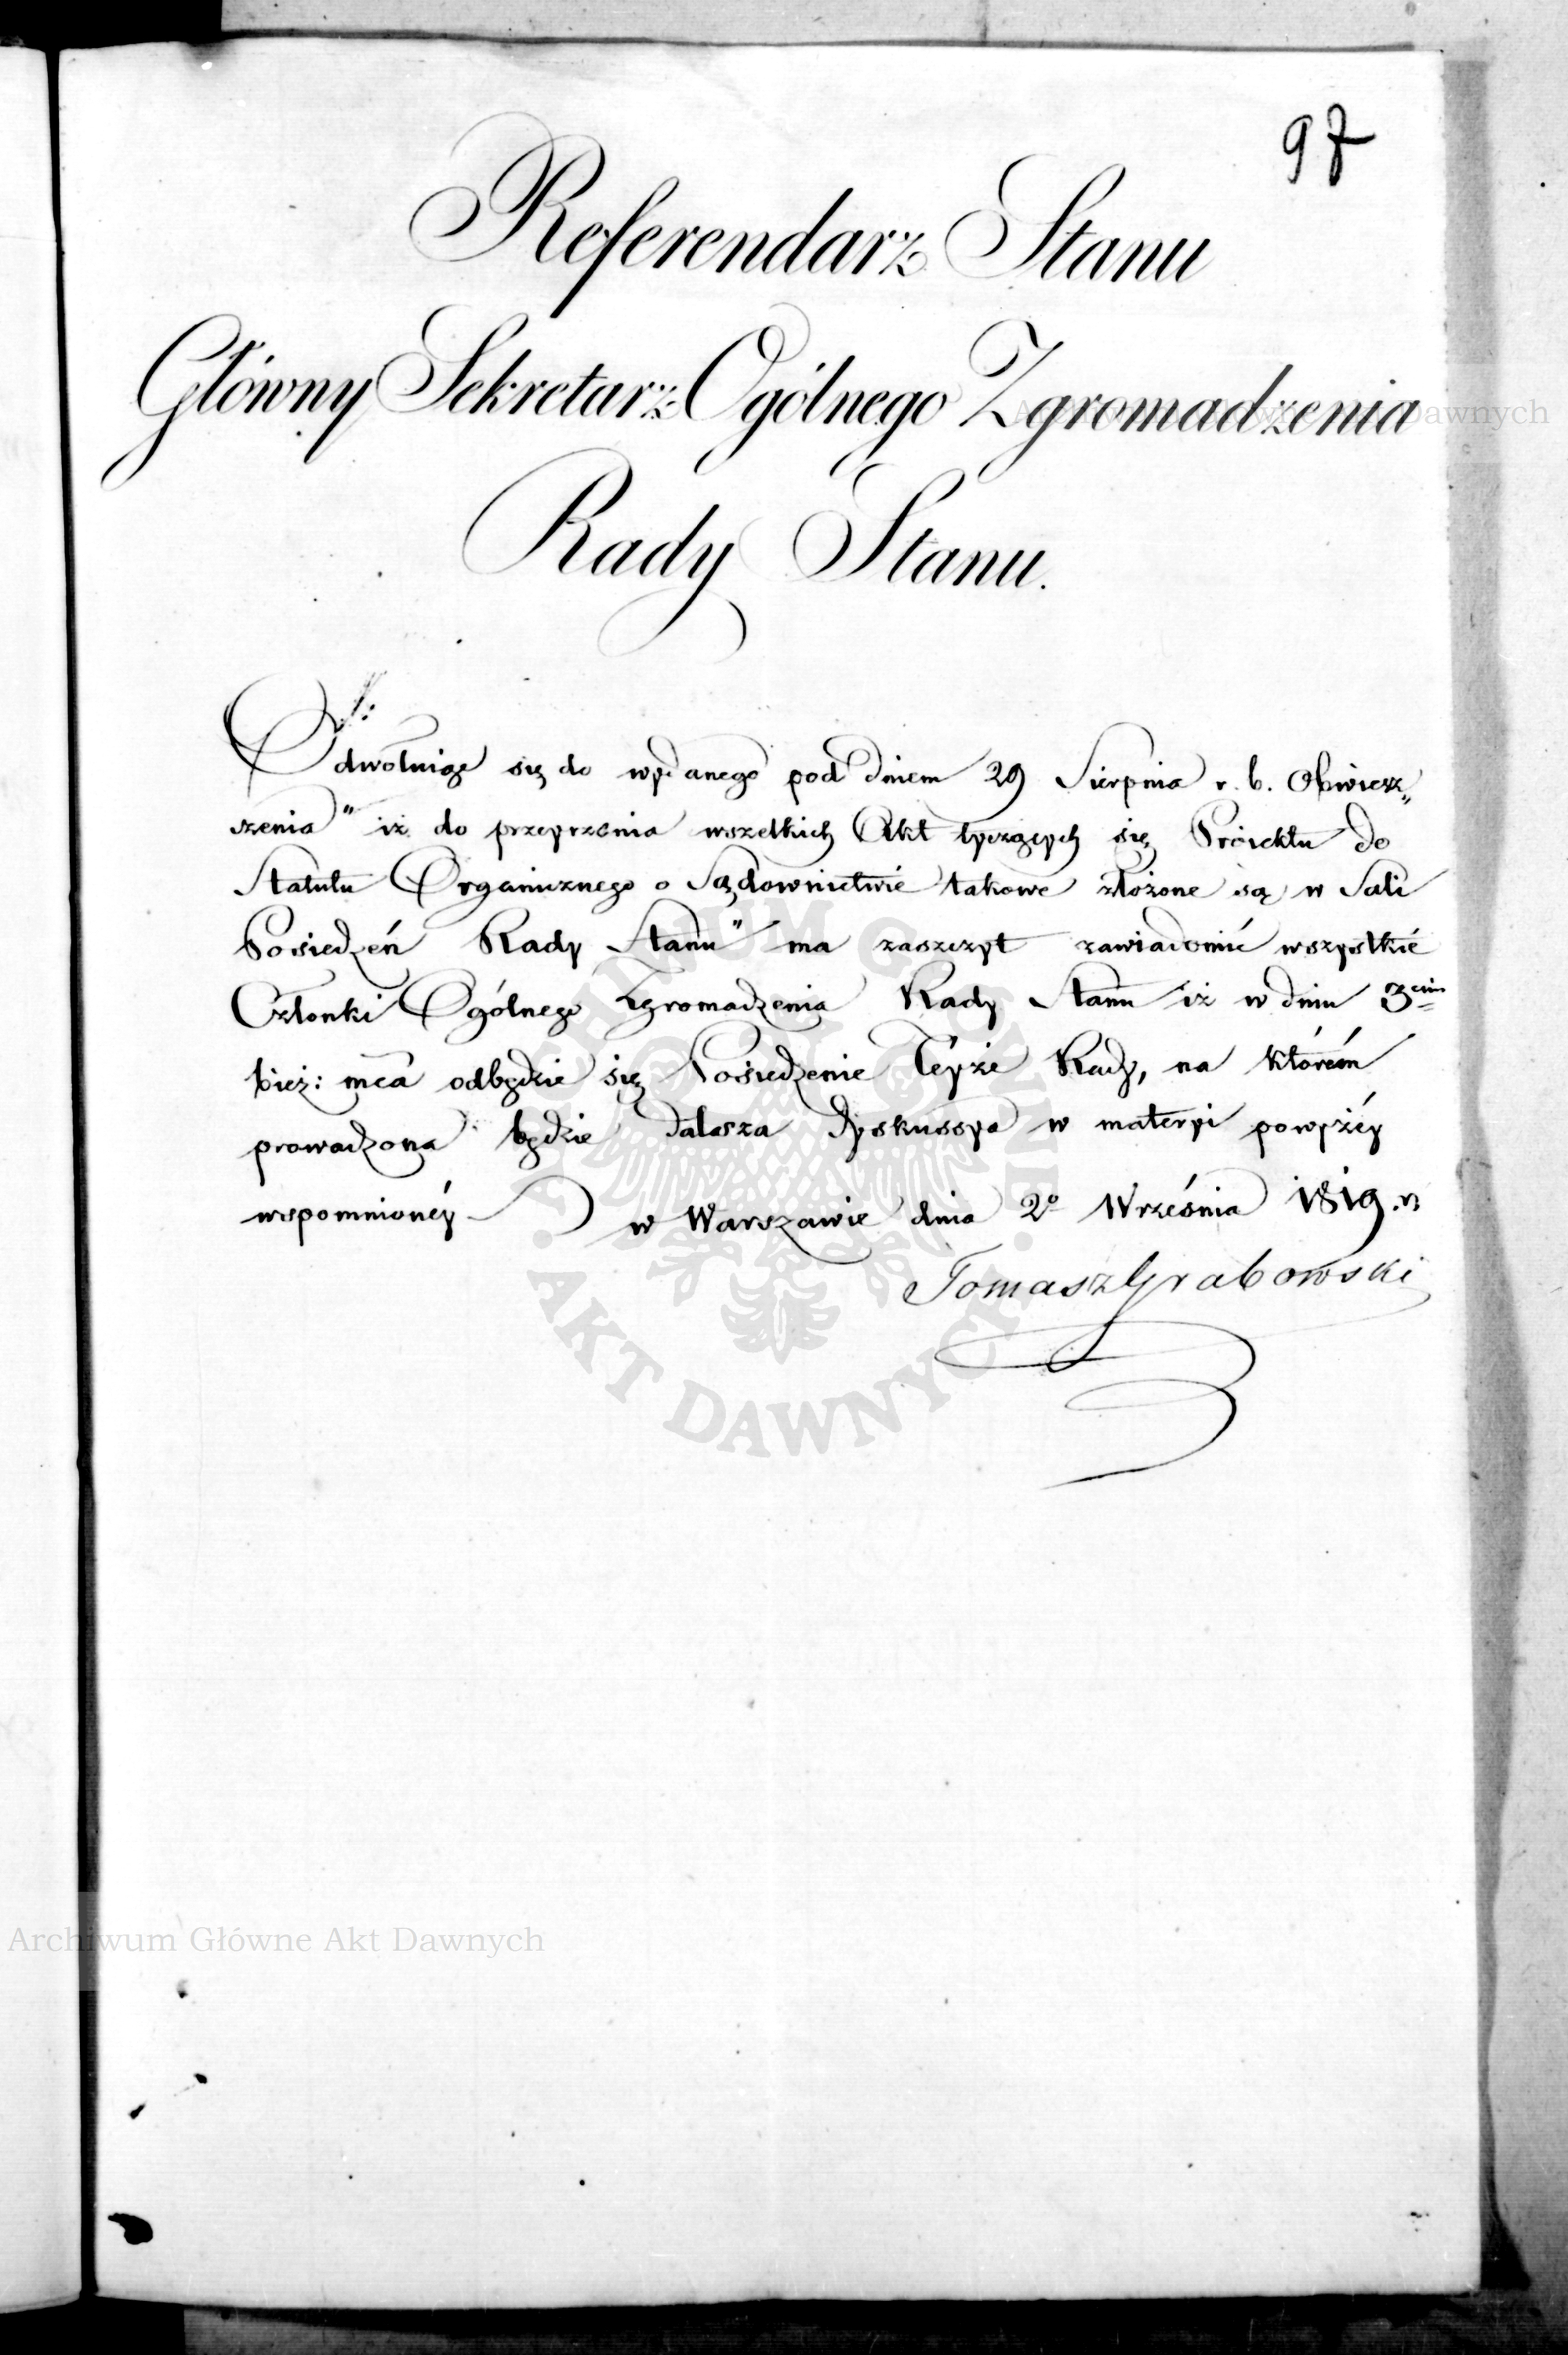 97
Referendarz Stanu
Główny Sekretarz Ogólnego Zgromadzenia
Rady Stanu.
Odwołuiąc się do wydanego pod dniem 29 Sierpnia r. b. Obwiesz„
szenia" iż do przeyrzenia wszelkich Akt tyczących się Proiektu do
Statutu Organicznego o Sądownictwie takowe złożone są w Sali
Posiedzeń Rady Stanu" ma zaszczyt zawiadomić wszystkie
Członki Ogólnego Zgromadzenia Rady Stanu iż w dniu 3cim
bież: mca odbędzie się Posiedzenie Téyże Rady, na którém
prowadzona będzie dalsza dyskussya w materyi powyżéy
wspomnionéy w Warszawie dnia 2o Września 1819. r.
Tomasz Grabowski
Archiwum Główne Akt Dawnych
ARCHIWUM GŁÓWNE AKT DAWNYCH
Archiwum Główne Akt Dawnych